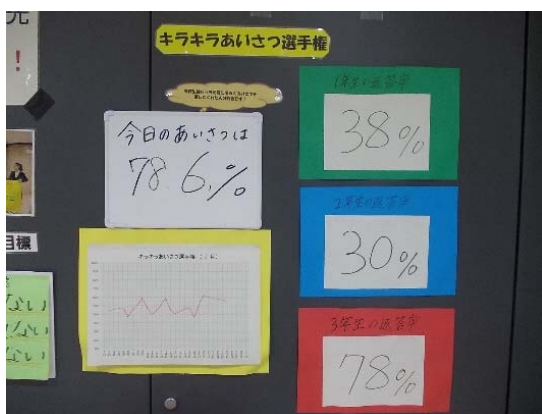 キラキラあいさつ選手権
今日のあいさつは
78.6%
キラキラあいさつ選手権
1年生の返答率
38%
2年生の返答率
30%
3年生の返答率
78%
！
目標
ない
ない
ない